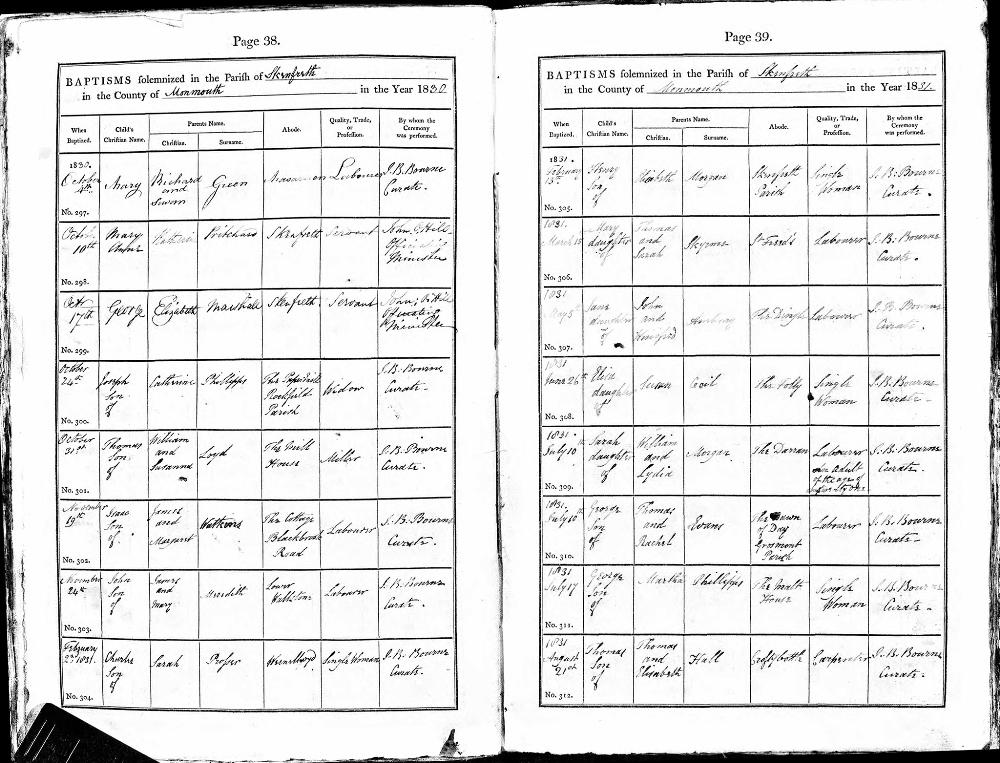 Page 38.
BAPTISMS solemnized in the Parish of Skenfreth
in the County of Monmouth in the Year 1830.
When Baptized. Child's Christian Name. Parents Name. Abode. Quality, Trade, or Profession. By whom the Ceremony was performed.
Christian. Surname.
1830. October Mary Richard and Green Labourer J. B. Bourne Curate.
No. 297.
Octr 10th Mary Pritchard Skenfreth Servant John Minister
No. 298.
Octr 17th George Elizabeth Marshall Skenfreth Servant John Minister
No. 299.
October 24th Joseph Son of Catherine Phillipps The Rockfield Parish Widow J. B. Bourne Curate.
No. 300.
October 31st Thomas Son of William and Susanna Loyd The Mill House Miller J. B. Bourne Curate.
No. 301.
November 19th Isaac Son of James and Margaret Watkins The Cottage Blackbrook Road Labourer J. B. Bourne Curate.
No. 302.
November 24th John Son of James and Mary Meredith Lower Labourer J. B. Bourne Curate.
No. 303.
February 2nd 1831. Charles Son of Sarah Prosser Single Woman J. B. Bourne Curate.
No. 304.
Page 39.
BAPTISMS solemnized in the Parish of Skenfreth
in the County of Monmouth in the Year 1831.
When Baptized. Child's Christian Name. Parents Name. Abode. Quality, Trade, or Profession. By whom the Ceremony was performed.
Christian. Surname.
1831. February 13th Henry Son of Elizabeth Morgan Skenfreth Parish Single Woman J. B. Bourne Curate.
No. 305.
1831. March 13 Mary daughter of Thomas and Sarah St Labourer J. B. Bourne Curate.
No. 306.
1831 Jane daughter of John and Labourer J. B. Bourne Curate.
No. 307.
1831 June 26th Eliza daughter of Susan Cecil The Folly Single Woman J. B. Bourne Curate.
No. 308.
1831. July 10th Sarah daughter of William and Lydia Morgan The Darran Labourer an adult of the age of J. B. Bourne Curate.
No. 309.
1831. July 10th George Son of Thomas and Rachel Evans The Dawn of Day Grosmont Parish Labourer J. B. Bourne Curate.
No. 310.
1831 July 17 George Son of Martha Phillipps The Malt House Single Woman J. B. Bourne Curate.
No. 311.
1831 August 21st Thomas Son of Thomas and Elizabeth Hall Carpenter J. B. Bourne Curate.
No. 312.